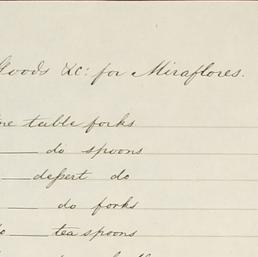 Goods &c: for Miraflores.
table forks
do spoons
desert do
do forks
tea spoons